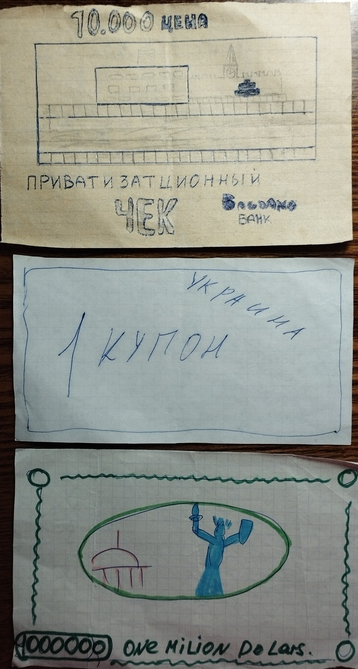 10.000 ЦЕНА
ПРИВАТИЗАТЦИОННЫЙ
ЧЕК
БАНК
УКРАИНА
1 КУПОН
1000000 ONE MILION DoLaRs.